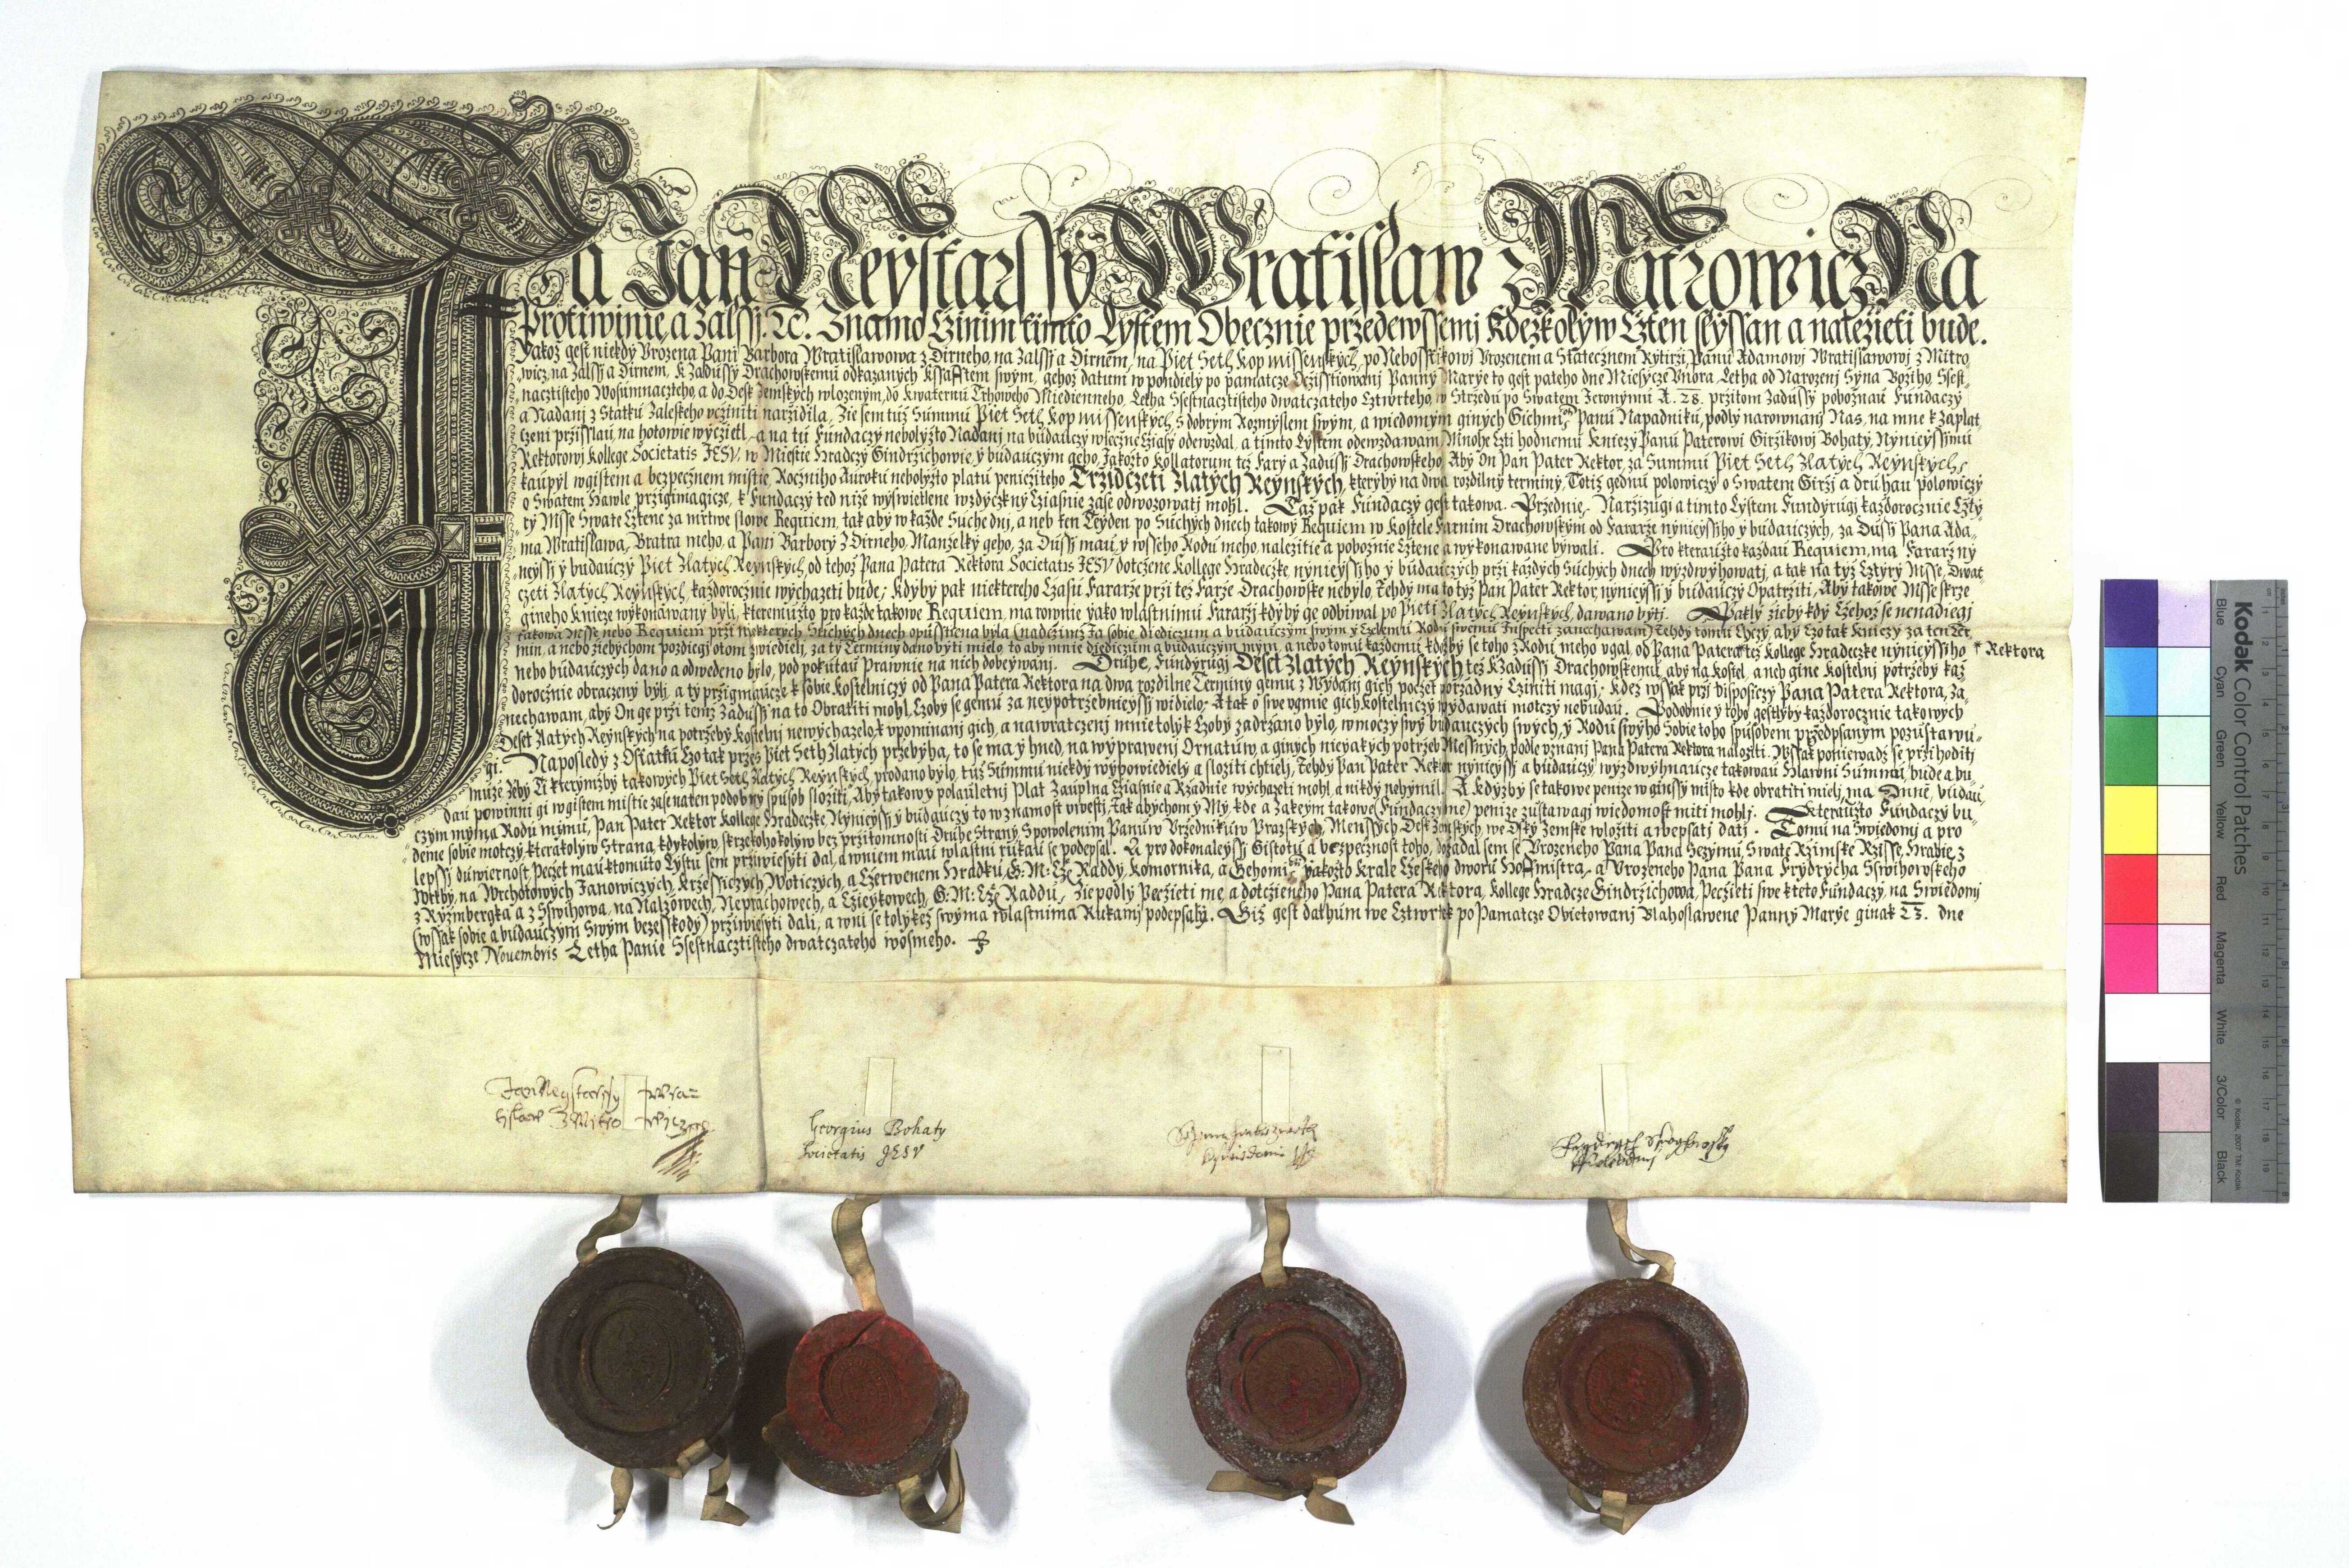 Ja Jan Neystarssy Wratislaw z Mitrowicz Na
Protiwinie, a Zalssj. ꝛc. Znamo Czinim timto Lystem Obecznie przedewssemi kdezkolyw Czten slyssan a nalezieti bude.
Jakoz gest niekdy Vrozena Pani Barbora Wratislawowa z Dirneho, na Zalssj a Dirnem, na Piet Seth kop missenskych, po Nebosstikowj Vrozenem a Statecznem Rytirzi Panu Adamowj Wratislawowj z Mitro
wicz, na Zalssj a Dirnem, k Zadussy Drachowskemu odkazanych kssafftem swym, gehoz datum w pondiely po pamatcze Oczisstiowanj Panny Marye to gest pateho dne Miesycze Vnora, Letha od Narozenj Syna Boziho, Ssest
nacztisteho Wosumnaczteho, a do Desk Zemskych wlozenym, do kwaternu Trhoweho Miedienneho, Letha Ssestnacztisteho dwatczateho Cztwrteho, w Strzedu po Swatem Jeronymu A. 28. przitom Zadussy poboznau Fundaczy
a Nadanj z Statku Zaleskeho vcziniti narzidila, Zie sem tuz Summu Piet Seth kop missenskych, s dobrym Rozmyslem swym, a wiedomym ginych Panu Napadniku, podly narownanj Nas, na mne k Zaplat
czeni przisslau, na hotowie wyczietl, a na tu Fundaczy nebolyzto Nadanj na buduczy wieczne Cziasy odewzdal, a timto Lystem odewzdawam, Mnohe Czti hodnemu kniezy Panu Paterowi Girzikowj Bohaty, Nynieyssymu
Rektorowj kollege Societatis JESV, w Miestie Hradczy Gindrzichowie, y buduczym geho, Jakozto kollatorum tez Fary a Zadussj Drachowskeho, Aby On Pan Pater Rektor, za Summu Piet Seth Zlatych Reynskych,
kaupyl w gistem a bezpecznem mistie, Roczniho Auroku nebolyzto platu peniezyteho Trzidczeti Zlatych Reynskych, kteryby na dwa rozdilny terminy, Totiz gednu polowiczy o Swatem Girzj a druhau polowiczy
o Swatem Hawle przigimagicze, k Fundaczy ted nize wyswietlene wzdyczkny Cziasnie zase odwozowatj mohl. Taz pak Fundaczy gest takowa. Przednie, Narzizugi a timto Lystem Fundyrugi kazdorocznie Czty
ry Msse Swate Cztene za mrtwe slowe Requiem, tak aby w kazde Suche dnj, a neb ten Teyden po Suchych dnech takowy Requiem w kostele Farnim Drachowskym od Fararze nynieyssiho y buduczych, za Dussy Pana Ada
ma Wratislawa, Bratra meho, a Panj Barbory z Dirneho, Manzelky geho, za Dussy mau, y wsseho Rodu meho, nalezitie a poboznie Cztene a wykonawane bywali. Pro kterauzto kazdau Requiem, ma Fararz ny
neyssj y buduczy Piet Zlatych Reynskych, od tehoz Pana Patera Rektora Societatis JESV dotczene kollege Hradeczke, nynieyssiho y buduczych przi kazdych Suchych dnech wyzdwyhowatj, a tak na tyz Cztyry Msse, Dwat
czeti Zlatych Reynskych, kazdorocznie wychazeti bude, kdyby pak niektereho Czasu Fararze przi tez Farze Drachowske nebylo, Tehdy ma to tyz Pan Pater Rektor, nynieyssj y buduczy Opatrziti, Aby takowe Msse skrze
gineho knieze wykonawany byli, kteremuzto pro kazde takowe Requiem, ma rownie yako wlastnimu Fararzj kdyby ge odbiwal po Pieti Zlatych Reynskych, dawano bytj. Paklj zieby kdy Czehoz se nenadiegj
takowa Msse nebo Requiem przi niekterych Suchych dnech opusstiena byla (nadczimz Ja sobie, diediczum a buduczym swym y Czelemu Rodu swemu Inspecti zanechawam) Tehdy tomu Chczy, aby Czo tak kniezy za ten Ter
min, a nebo ziebychom pozdiegi otom zwiedielj, za ty Terminy dano byti mielo, to aby mnie diediczum a buduczym mym, a nebo tomu kazdemu kdozby se toho z Rodu meho vgal, od Pana Patera * tez kollege Hradeczke nynieyssiho * Rektora
nebo buduczych dano a odwedeno bylo, pod pokutau Prawnie na nich dobeywanj. Druhe, Fundyrugi Deset Zlatych Reynskych tez k Zadussj Drachowskemu, aby na kostel, a neb gine kostelnj potrzeby kaz
dorocznie obraczeny bylj, a ty przigmaucze k sobie kostelniczy od Pana Patera Rektora na dwa rozdilne Terminy gemu z Wydanj gich poczet porzadny Cziniti magi, kdez wssak przj disposiczy Pana Patera Rektora, za
nechawam, aby On ge przi temz Zadussj na to Obratiti mohl, Czoby se gemu za neypotrzebnieyssj widielo, A tak o swe vgmie gich kostelniczy wydawati motczy nebudau. Podobnie y toho gestlyby kazdorocznie takowych
Deset Zlatych Reynskych na potrzeby kostelnj newychazelo, k vpominanj gich, a nawratczenj mnie tolyk Czoby zadrzano bylo, w moczy swy buduczych swych, y Rodu swyho Sobie toho spusobem przedepsanym pozustawu
gi. Naposledy z Ostatku Czo tak przes Piet Seth Zlatych przebyha, to se ma y hned, na wyprawenj Ornatuw, a ginych nieyakych potrzeb Messnych, podle vznanj Pana Patera Rektora nalozíti. Wssak poniewadz se przihoditj
muze zeby Ti kterymzby takowych Piet Seth Zlatych Reynskych, prodano bylo, tuz Summu niekdy wypowiediely a sloziti chtielj, Tehdy Pan Pater Rektor nynieyssj a buduczy wyzdwyhnaucze takowau Hlawni Summu, bude a bu
dau powinni gi w gistem mistie zase na ten podobny spusob sloziti, Aby takowy polauletnj Plat Zauplna Cziasnie a Rzadnie wychazeti mohl, a nikdy nehynul. A kdyzby se takowe penize w ginssy misto kde obratiti mielj, ma Mnie, budau
czym mym a Rodu mymu, Pan Pater Rektor kollege Hradeczke, Nynieyssj y buduczy to w znamost vwestj, tak abychom y My, kde a Zakeym takowe (Fundaczyjne) penize zustawagi wiedomost miti mohlj. kterauzto Fundaczy bu
deme sobie motczy, kterakolyw Strana, kdykolyw, skrze kohokolyw bez przitomnosti Druhe Strany, Spowolenim Panuw Vrzednikuw Prazskych, Menssych Desk Zemskych, we Dsky Zemske wlozíti a wepsatj datj. Tomu na Swiedomj a pro
lepssj duwiernost, Peczet mau k tomuto Lystu sem przywiesyti dal, a wniem mau wlastni rukau se podepsal. A pro dokonaleyssj Gistotu a bezpecznost toho, dozadal sem se Vrozeneho Pana Pana Sezymy Swate Rzimske Rzisse, Hrabie z
Wrtby, na Wrchotowych Janowiczych, krzessiczych, Woticzych, a Czerwenem Hradku, G: M: Cze Raddy, komornika, a Gehomi yakozto krale Czeskeho dworu Hoffmistra, a Vrozeneho Pana Pana Frydrycha Sswihowskeho
z Ryzmbergka a z Sswihowa, na Nalzowech, Neprachowech, a Czieykowech, G: M: Cze Raddu, Zie podly Peczieti me, a dotczieneho Pana Patera Rektora, kollege Hradcze Gindrzichowa, Peczieti swe k teto Fundaczy, na Swiedomj
(wssak sobie a buduczym Swym bezesskody) przywiesyti dali, a wni se tolykez swyma wlastnima Rukamj podepsaly. Giz gest dathum we Cztwrtek po Pamatcze Obietowanj Blahoslawene Panny Marye ginak 23. dne
Miesycze Nouembris Letha Panie Ssestnacztisteho dwatczateho wosmeho.
Jan Neystarssy Wra=
tislaw Z Mitrowicz
Georgius Bohaty
Societatis JESV